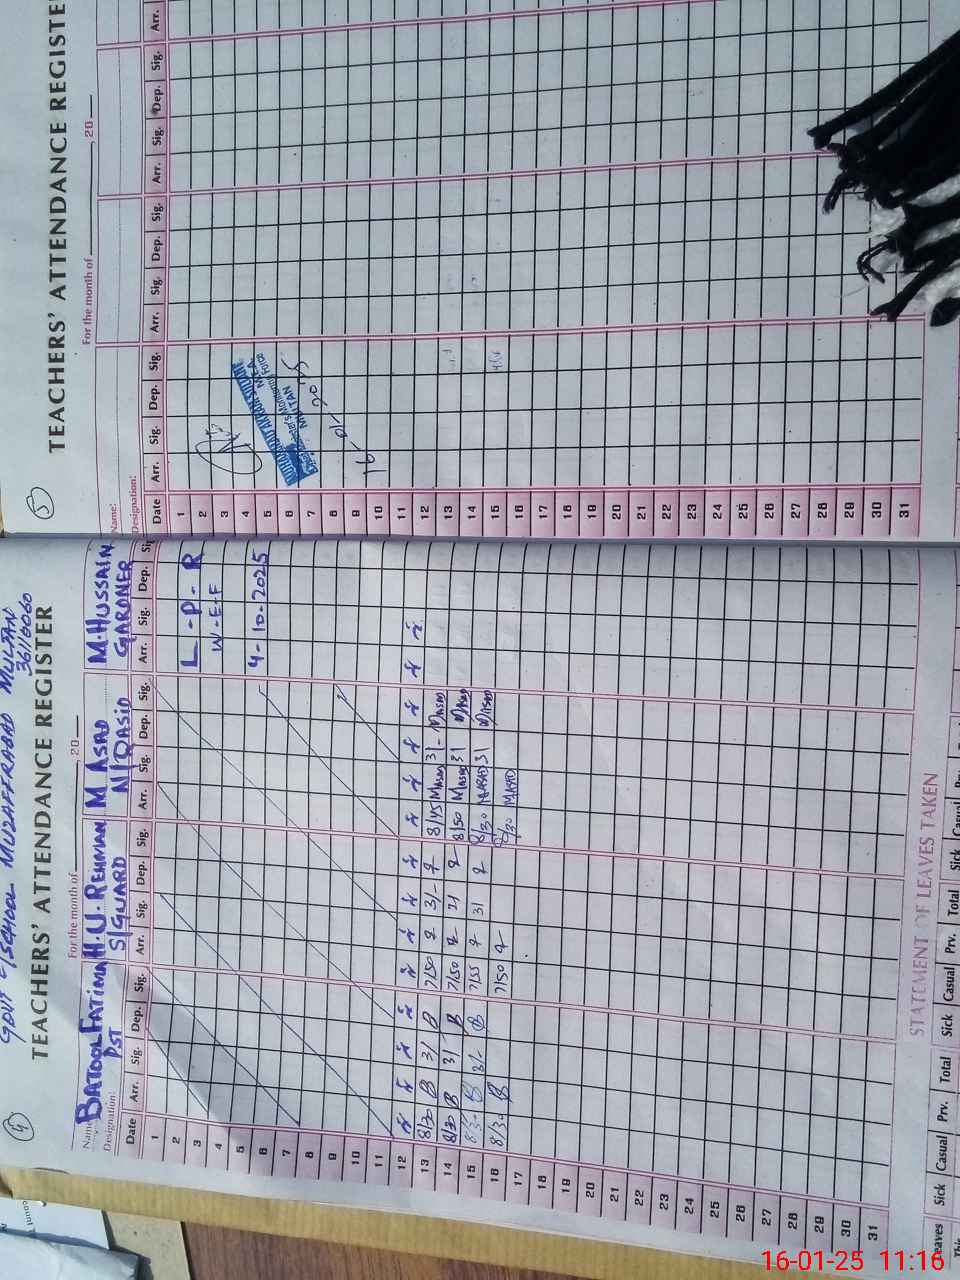 4
GOVT E/SCHOOL MUZAFFRABAD MULTAN
36110060
TEACHERS' ATTENDANCE REGISTER
For the month of ______, 20 ___
Name: BATOOL FATIMA H.U.REHMAN M ASAD M.HUSSAIN
Designation: PST S/GUARD N/QASID GARDNER
Date Arr. Sig. Dep. Sig. Arr. Sig. Dep. Sig. Arr. Sig. Dep. Sig. Arr. Sig. Dep. Sig.
1
2 L-P-R
3 W-E-F
4
5 4-10-2025
6
7
8
9
10
11
12
13 8/30 B 31 B 7/50 31- 8/45 MASAD 31- MASAD
14 8/30 B 31 B 7/50 21 8/50 MASAD 31 MASAD
15 8/30 B 31- B 7/55 31 8/30 MASAD 31 MASAD
16 8/30 B 7/50 8/30 MASAD
17
18
19
20
21
22
23
24
25
26
27
28
29
30
31
STATEMENT OF LEAVES TAKEN
Leaves Sick Casual Prv. Total Sick Casual Prv. Total Sick Casual
This
5
TEACHERS' ATTENDANCE REGISTER
For the month of ______, 20 ___
Name:
Designation:
Date Arr. Sig. Dep. Sig. Arr. Sig. Dep. Sig. Arr. Sig. Dep. Sig. Arr.
1
2
3
4
5
6
7
8
9
10
11
12
13
14
15
16
17
18
19
20
21
22
23
24
25
26
27
28
29
30
31
MUHAMMAD AKBAR SULTAN
MEA
Monitoring Force
MULTAN
16-01-2025
16-01-25 11:16